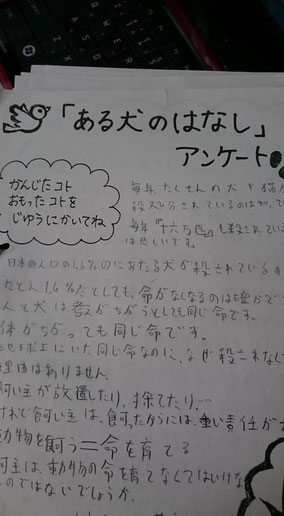 「ある犬のはなし」
アンケート
かんじたコト
おもったコトを
じゆうにかいてね
毎年、たくさんの犬や猫が
殺処分されているのは知って
毎年『十六万匹』も殺されてい
は悲しいです。
日本の人口の1.6%のにあたる犬が殺されている
たとえ1.6%だとしても、命がなくなるのは確かで
人と犬は考えがちがうとしても同じ命です。
体がちがっても同じ命です。
同じ命なのに、なぜ殺されなくて
理由はありません。
飼い主が放置したり、捨てたり…
けれど飼い主は、飼ったからには重い責任が
動物を飼う＝命を育てる
飼い主は、動物の命を育てなくてはいけな
ものではないでしょうか。